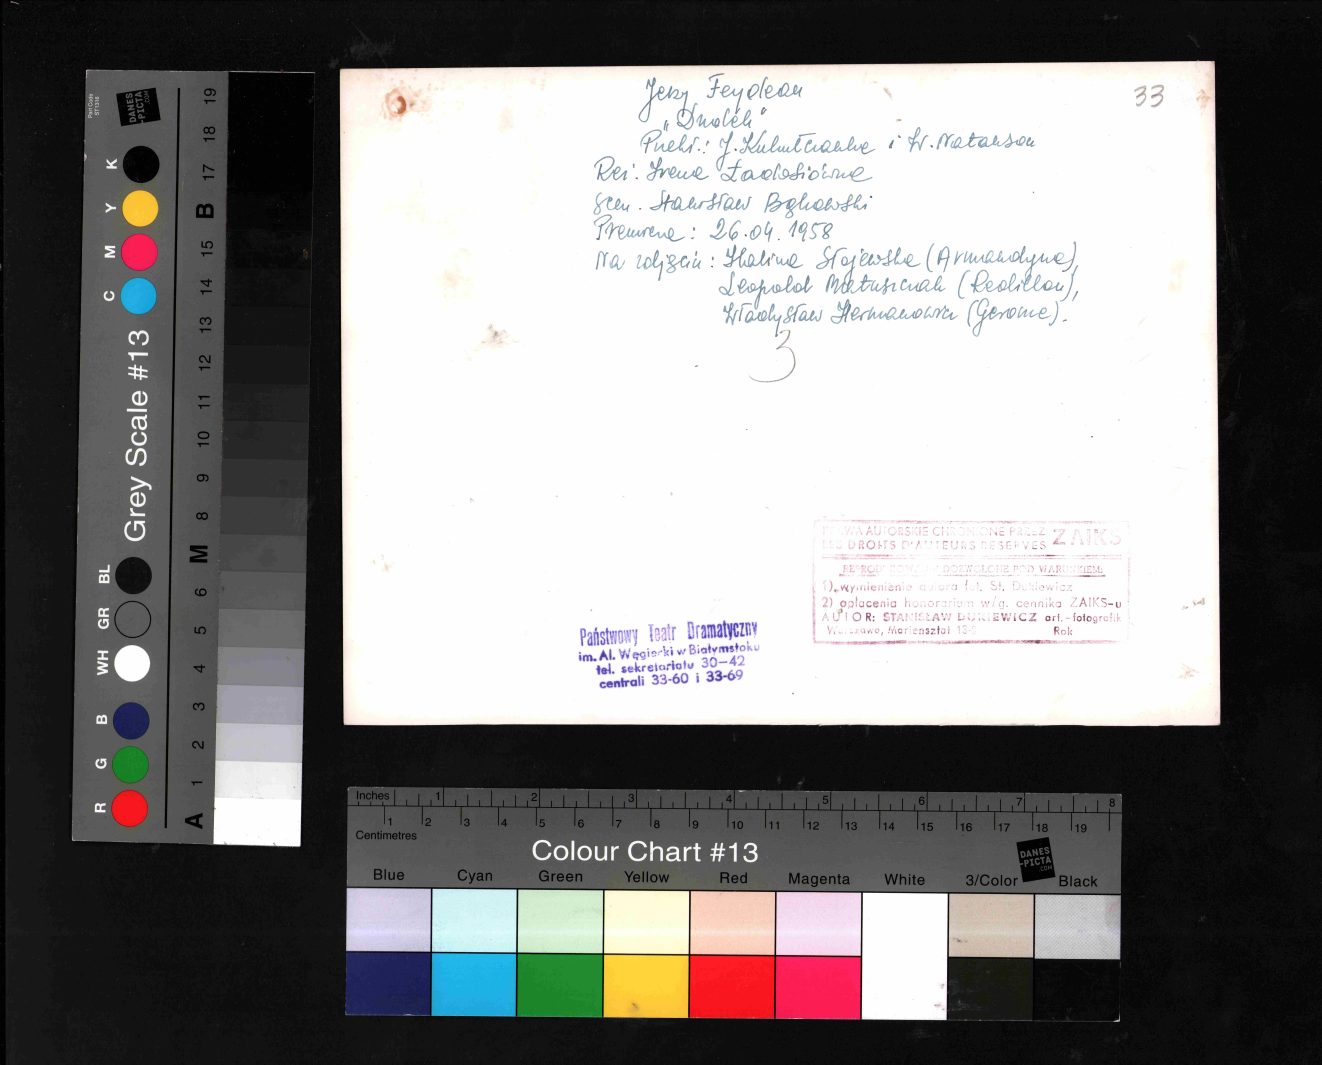 Jerzy Feydeau
„Dudek"
Przekł.: J. i W. Natanson
Reż. Irena Ładosiówna
Scen. Stanisław Bąkowski
Premiera: 26.04.1958
Na zdjęciu: Halina Stojewska (Armandyna),
Leopold Matuszczak (Redillon),
Władysław Hermanowicz (Gerome).
3
33
Państwowy Teatr Dramatyczny
im. Al. Węgierki w Białymstoku
tel. sekretariatu 30—42
centrali 33-60 i 33-69
PRAWA AUTORSKIE CHRONIONE PRZEZ
LES DROITS D'AUTEURS RESERVES
ZAIKS
REPRODUKOWANIE DOZWOLONE POD WARUNKIEM:
1) wymienienia autora fot. St. Dukiewicz
2) opłacenia honorarium w/g. cennika ZAIKS-u
AUTOR: STANISŁAW DUKIEWICZ art.-fotografik
Warszawa, Mariensztat Rok
Part Code
ST1316
DANES
-PICTA
.COM
Grey Scale #13
R G B WH GR BL C M Y K
A 1 2 3 4 5 6 M 8 9 10 11 12 13 14 15 B 17 18 19
Inches 1 2 3 4 5 6 7 8
1 2 3 4 5 6 7 8 9 10 11 12 13 14 15 16 17 18 19
Centimetres
Colour Chart #13
DANES
-PICTA
.COM
Blue Cyan Green Yellow Red Magenta White 3/Color Black